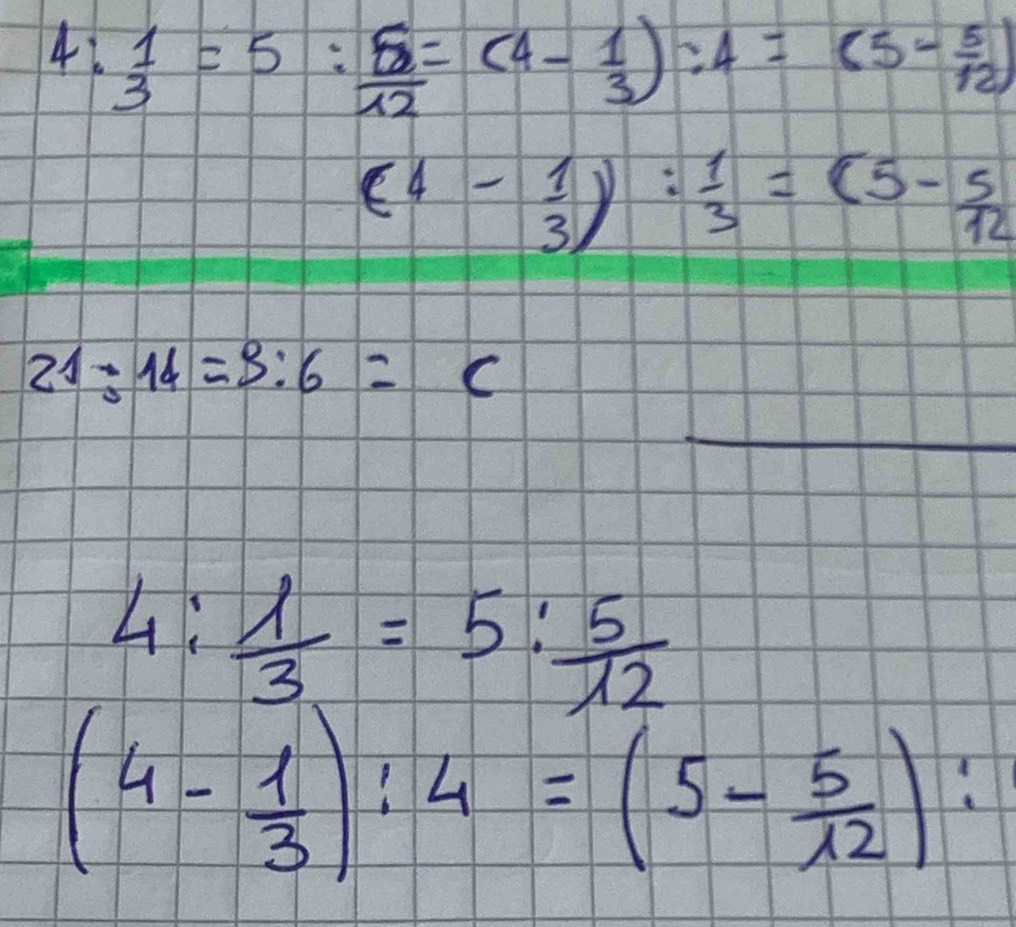 4 : 1/3 = 5 : 5/12 = (4 - 1/3) : 4 = (5 - 5/12)
(4 - 1/3) : 1/3 = (5 - 5/12
21 : 14 = 9 : 6 = C
4 : 1/3 = 5 : 5/12
(4 - 1/3) : 4 = (5 - 5/12) :